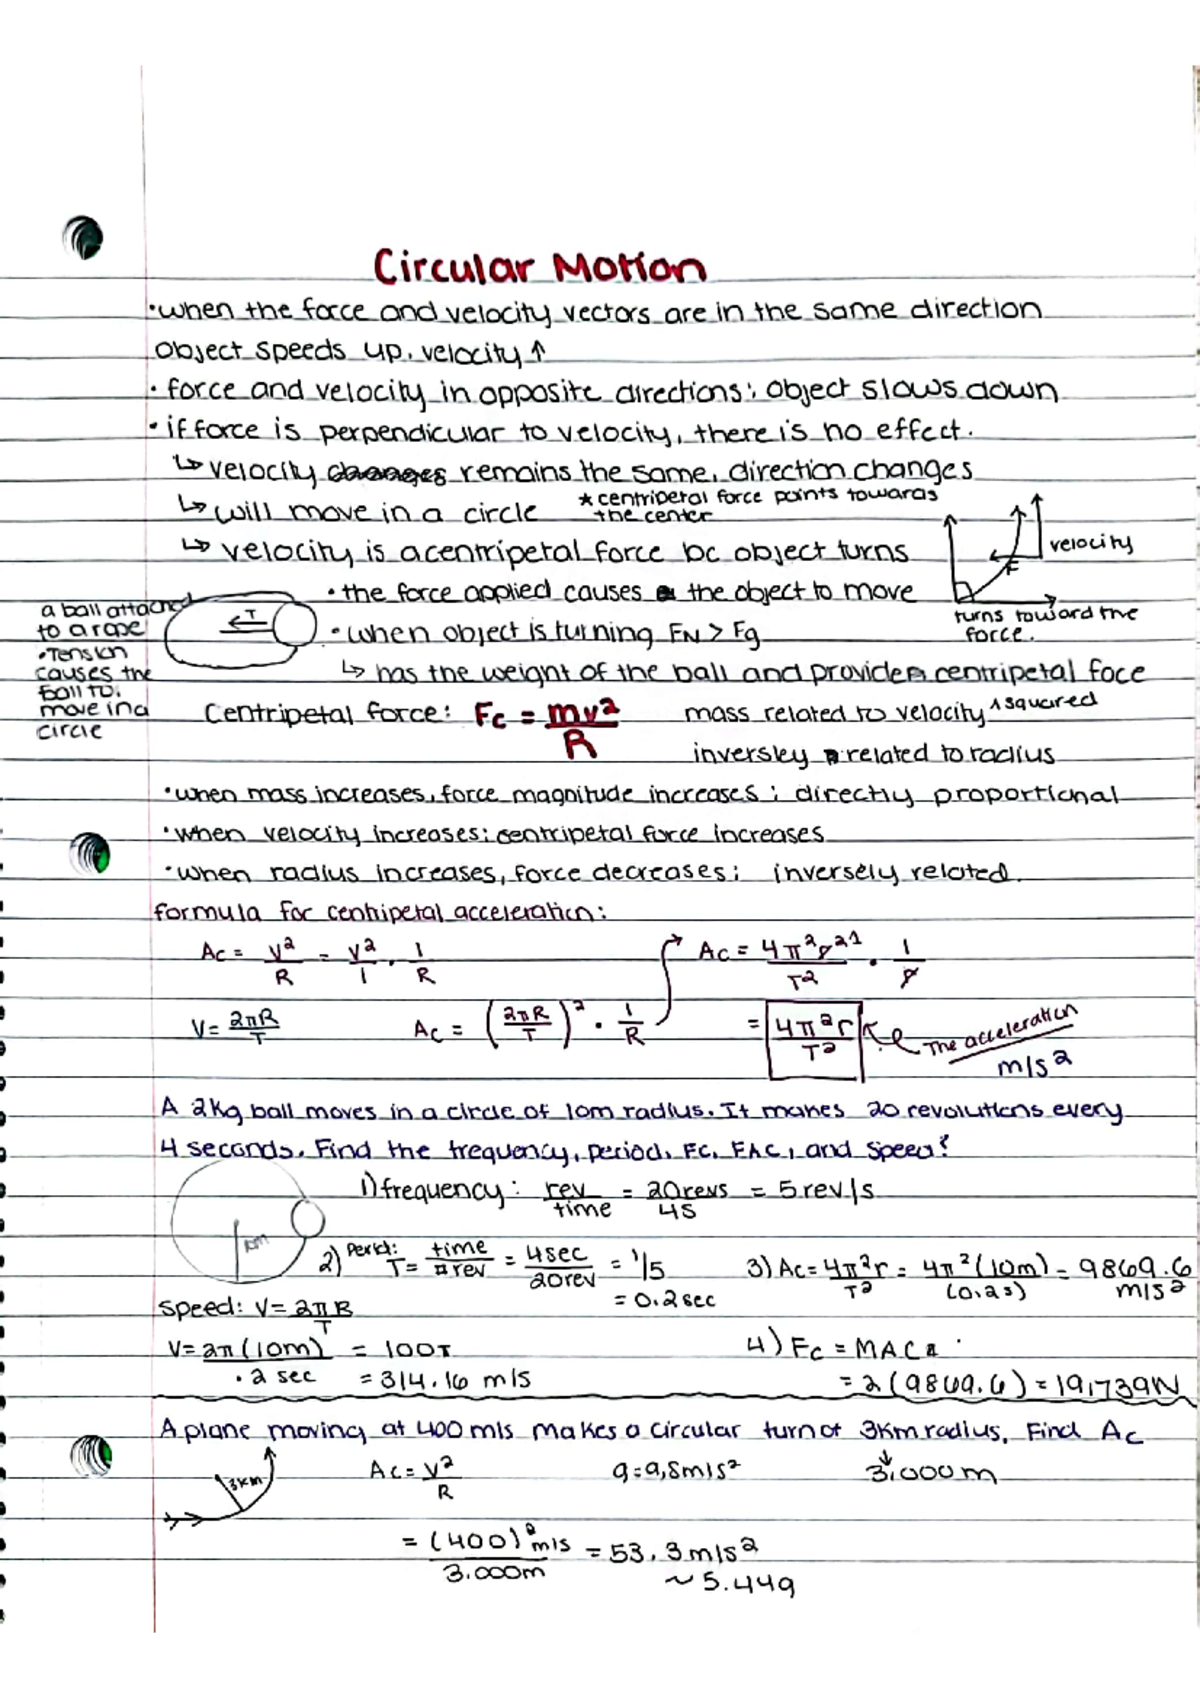 Circular Motion
•when the force and velocity vectors are in the same direction
object speeds up, velocity ↑
• force and velocity in opposite directions: object slows down
• if force is perpendicular to velocity, there is no effect.
↳ velocity changes remains the same, direction changes
↳ will move in a circle
* centripetal force points towards
the center
↳ velocity is a centripetal force bc object turns
velocity
F
turns toward the
force.
• the force applied causes the object to move
a ball attached
to a rope
•Tension
causes the
ball to
move in a
circle
T
• when object is turning FN > Fg
↳ has the weight of the ball and provides centripetal foce
Centripetal force: Fc = mv²/R
mass related to velocity ^squared
inversley related to radius
•when mass increases, force magnitude increases; directly proportional
•when velocity increases; centripetal force increases
•when radius increases, force decreases; inversely related.
formula for centripetal acceleration:
Ac = V²/R = V²/1 · 1/R
Ac = 4π²r²¹/T² · 1/r
V = 2πR/T
Ac = (2πR/T)² · 1/R
= 4π²r/T²
The acceleration
m/s²
A 2kg ball moves in a circle of 10m radius. It makes 20 revolutions every
4 seconds. Find the frequency, period, Fc, FAC, and speed?
10m
1) frequency: rev/time = 20revs/4s = 5 rev/s
2) Period: T = time/# rev = 4sec/20rev = 1/5
= 0.2 sec
3) Ac = 4π²r/T² = 4π²(10m)/(0.2s) = 9869.6 m/s²
speed: V = 2πR/T
V = 2π(10m)/.2 sec = 100π
= 314.16 m/s
4) Fc = MAC
= 2(9869.6) = 19,739N
A plane moving at 400 m/s makes a circular turn of 3km radius. Find Ac
3km
Ac = V²/R
g = 9,8m/s²
↓
3.000m
= (400)² m/s/3.000m = 53.3 m/s²
~ 5.44g